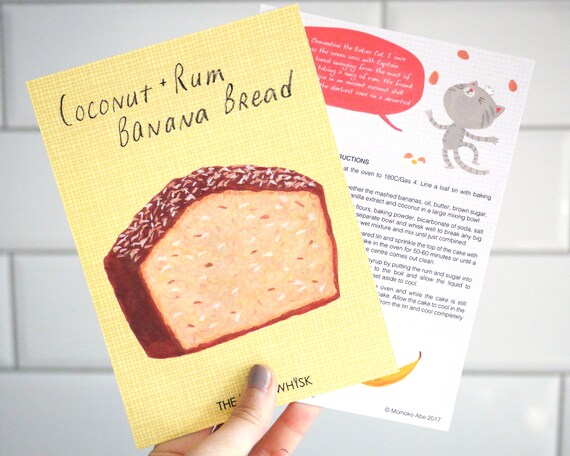 Coconut + Rum
Banana Bread
THE WHISK
Clementine the Baker Cat. I once
the seven seas with Captain
loved swinging from the mast of
taking a swig of rum. We found
in an ancient coconut shell
the darkest cave on a deserted
RUCTIONS
at the oven to 180C/Gas 4. Line a loaf tin with baking
ether the mashed bananas, oil, butter, brown sugar,
anilla extract and coconut in a large mixing bowl.
flours, baking powder, bicarbonate of soda, salt
separate bowl and whisk well to break any big
wet mixture and mix until just combined.
ared tin and sprinkle the top of the cake with
ake in the oven for 50-60 minutes or until a
e centre comes out clean.
syrup by putting the rum and sugar into
to the boil and allow the liquid to
set aside to cool.
e oven and while the cake is still
cake. Allow the cake to cool in the
from the tin and cool completely
© Momoko Abe 2017